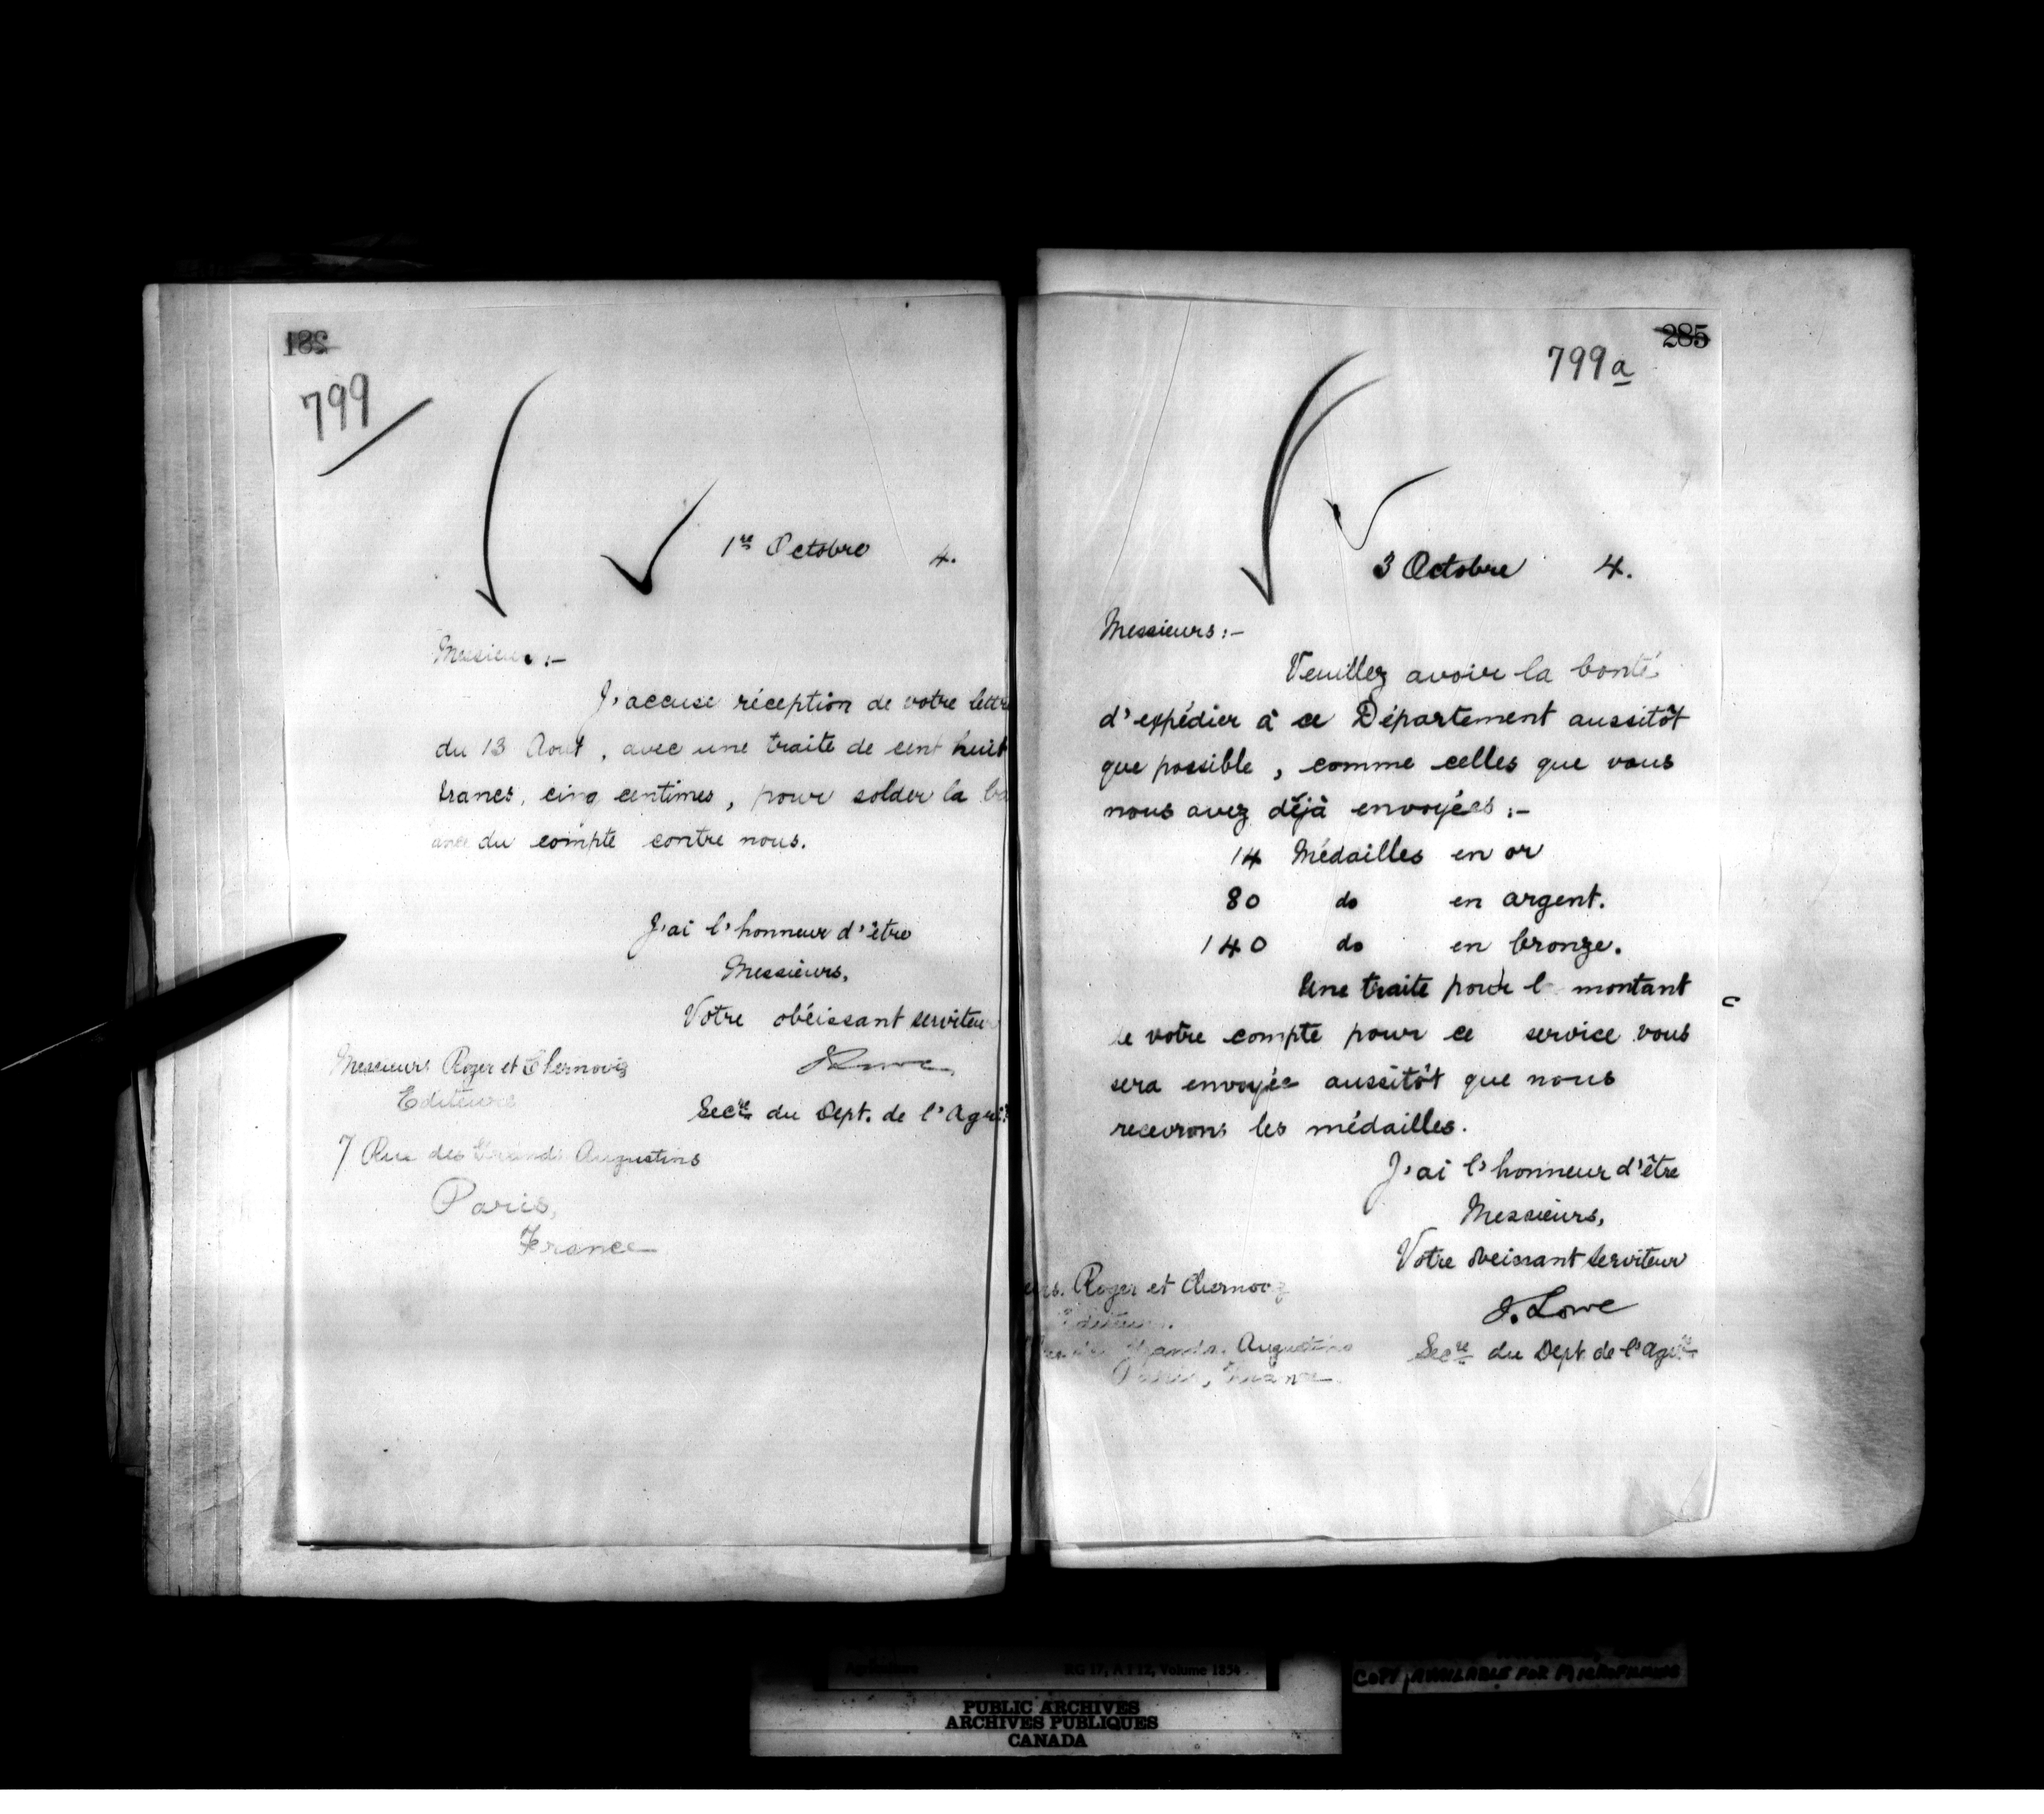 281
799
1re Octobre 4.
Messieurs :-
J'accuse réception de votre lettre
du 13 Aout, avec une traite de cent huit
francs, cinq centimes, pour solder la
du compte contre nous.
J'ai l'honneur d'être
Messieurs,
Votre obéissant serviteur
Messieurs Roger et Chernoviz
Editeurs
Secre du Dept. de l'Agri
7 Rue des Grands Augustins
Paris,
France
285
799a
3 Octobre 4.
Messieurs :-
Veuillez avoir la bonté
d'expédier à ce Département aussitôt
que possible, comme celles que vous
nous avez déjà envoyées :-
14 Médailles en or
80 do en argent.
140 do en bronze.
Une traite pour l montant
de votre compte pour ce service vous
sera envoyée aussitôt que nous
recevrons les médailles.
J'ai l'honneur d'être
Messieurs,
Votre obeissant serviteur
J. Lowe
Secre du Dept de l'Agri
Roger et Chernoviz
Editeurs.
Grands Augustins
Paris, France
Agriculture RG 17, A I 12, Volume 1834
COPY AVAILABLE FOR MICROFILMING
PUBLIC ARCHIVES
ARCHIVES PUBLIQUES
CANADA